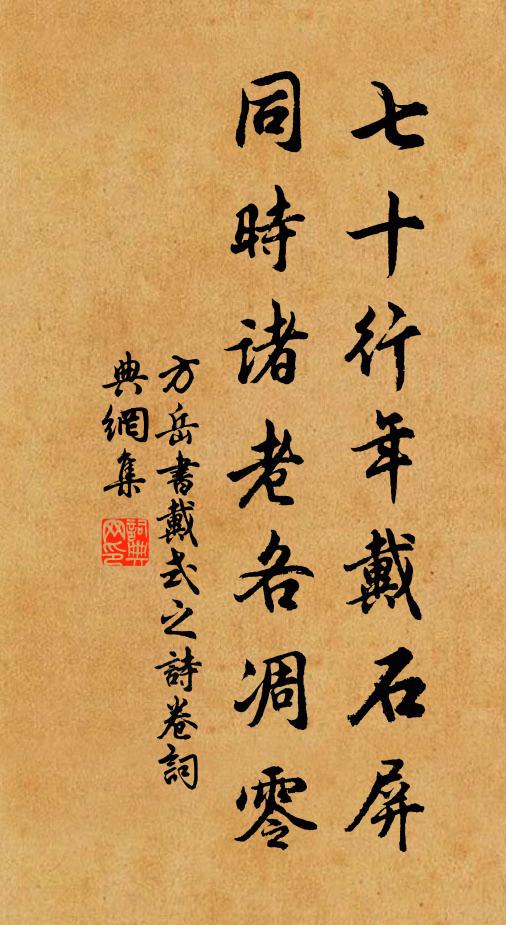 七十行年戴石屏
同時诸老各凋零
方岳書戴式之詩卷詞
典網集
詞典网印